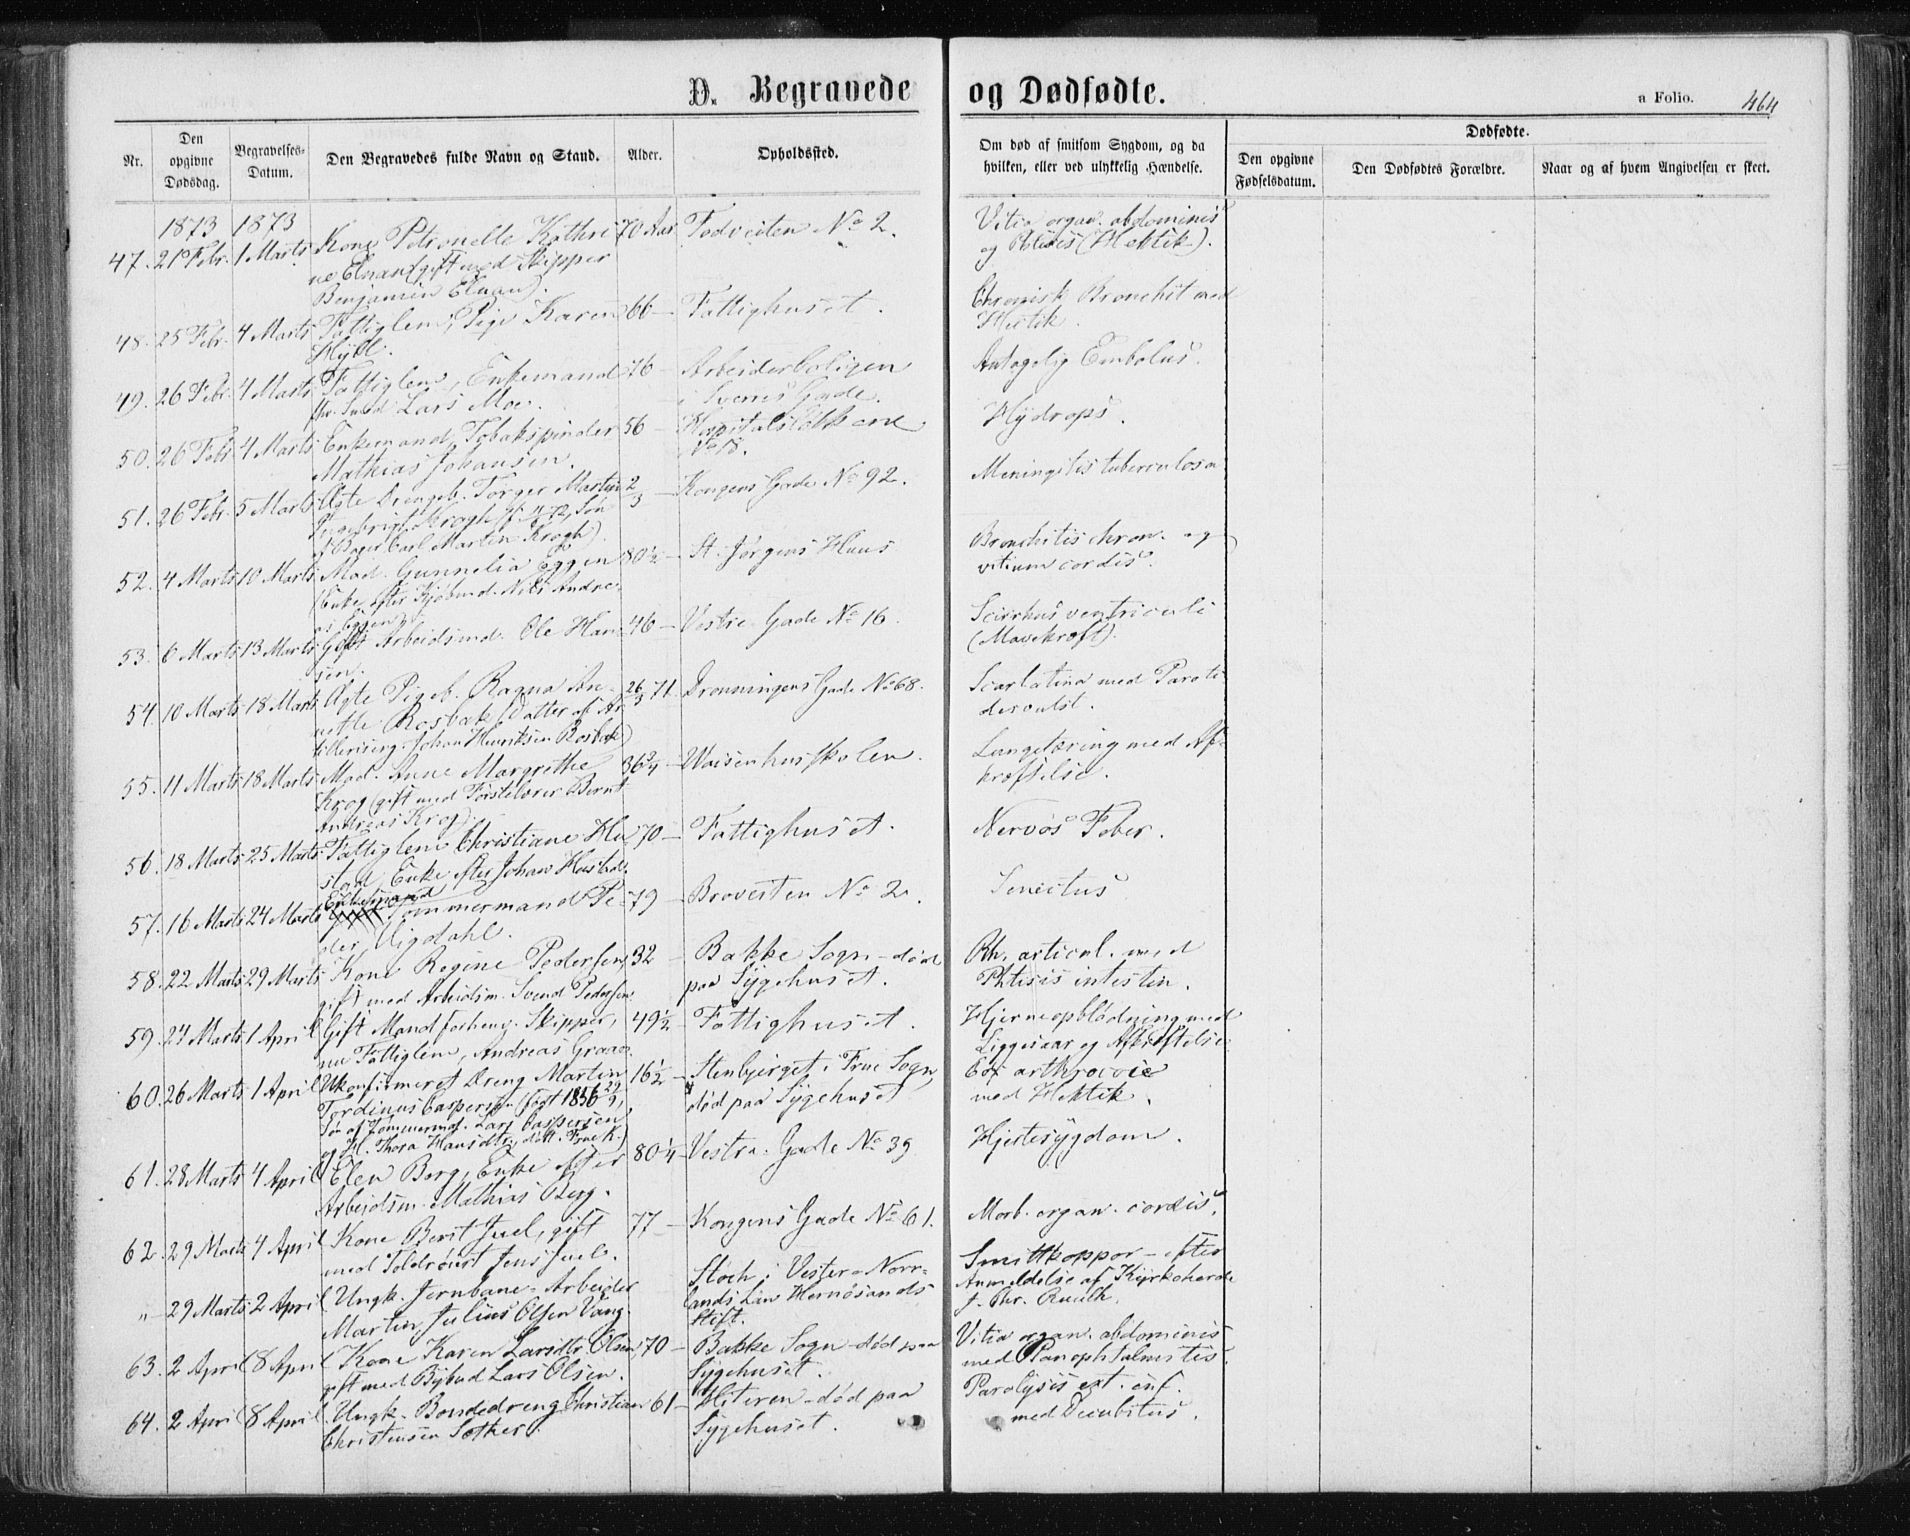 D. Begravede og Dødfødte.
a Folio. 464
Nr.
Den opgivne Dødsdag.
Begravelses-Datum.
Den Begravedes fulde Navn og Stand.
Alder.
Opholdssted.
Om død af smitsom Sygdom, og da hvilken, eller ved ulykkelig Hændelse.
Dødfødte.
Den opgivne Fødselsdatum.
Den Dødfødtes Forældre.
Naar og af hvem Angivelsen er skeet.
1873 1873
47. 21 Febr. 1 Marts Kone Petronelle Kathri- 70 Aar Fodveiten No 2. Vitia organ. abdominis
ne Elnan (gift med Skipper og Phtisis (Hektik).
Benjamin Elnan).
48. 25 Febr. 4 Marts Fattiglem, Pige Karen 66 – Fattighuset. Chronisk Bronchit med
Hybl. Hectik.
49. 26 Febr. 4 Marts Fattiglem, Enkemand 76 – Arbeiderboligen Antagelig Embolus.
Lars Moe. i Sverres Gade.
50. 26 Febr. 4 Marts Enkemand, Tobakspinder 56 – Hospitalsløkkerne Hydrops.
Mathias Johansen. No 18.
51. 26 Febr. 5 Marts Ægte Drengeb. Torger Martin 2/3 – Kongens Gade No 92. Meningitis tuberculosa
Ingebrigt Krogh, Søn
af Bager Carl Martin Krogh).
52. 4 Marts 10 Marts Mad. Gunnelia Eggen 80½ – St. Jørgens Huus Bronchitis chron. og
(Enke efter Kjøbmd. Nils Andre- vitium cordis.
as Eggen)
53. 6 Marts 13 Marts Gift Arbeidsmd. Ole Han- 46 – Vestre Gade No 16. Scirrhus ventriculi
sen. (Mavekræft).
54. 10 Marts 18 Marts Ægte Pigeb. Ragna An- 26/3 71. Dronningens Gade No 68. Scarlatina med Paroti-
nette Rosbak (Datter af Ar-
tilleriserg. Johan Henriksen Rosbak)
55. 11 Marts 18 Marts Mad. Anne Margrethe 36 – Waisenhusskolen. Lungetæring med Af-
Krog (gift med Førstelærer Bernt kræftelse.
Andreas Krog).
56. 18 Marts 25 Marts Fattiglem Christiane Hu- 70 – Fattighuset. Nervøs Feber.
stad, Enke efter Johan Hustad.
Enkemand
57. 16 Marts 24 Marts Tømmermand Pe- 79 – Broveiten No 2. Senectus
der Vigdahl.
58. 22 Marts 29 Marts Kone Regine Pedersen, 32 – Bakke Sogn – død Rh. articul. med
gift med Arbeidsm. Svend Pedersen. paa Sygehuset. Phtisis intestin.
59. 24 Marts 1 April Gift Mand forheny. Skipper, 49½ – Fattighuset. Hjerneopblødning med
nu Fattiglem, Andreas Graae. Liggesaar og Afkræftelse
60. 26 Marts 1 April Ukonfirmeret Dreng Martin 16½ – Stenbjerget i Frue Sogn, Cox arthrocace
Tordinus Caspersen (født 1856 29/9, død paa Sygehuset med Hektik.
Søn af Tømmermd. Lars Caspersen
og H. Thora Hansdtr, døbt i Frue K.)
61. 28 Marts 4 April Elen Berg, Enke efter 80¼ – Vestre Gade No 39 Hjertesygdom.
Arbeidsm. Mathias Berg.
62. 29 Marts 4 April Kone Berit Juel, gift 77 – Kongens Gade No 61. Morb. organ. cordis.
med Toldrorist Jens Juel.
„ 29 Marts 2 April Ungk. Jernbane-Arbeider Stöch i Vester-Norr- Smittkoppor – efter
Martin Julius Olsen Vang. lands Län Hernösands Anmeldelse af Kyrkoherde
Stift.
63. 2 April 8 April Kone Karen Larsdtr. Olsen 70 – Bakke Sogn – død paa Vitia organ. abdominis
gift med Bybud Lars Olsen. Sygehuset. med Panophtalmitis.
64. 2 April 8 April Ungk. Bondedreng Christian 61 – Hiteren – død paa Paralysis ext. inf.
Christensen Sæther. Sygehuset. med Decubitus.